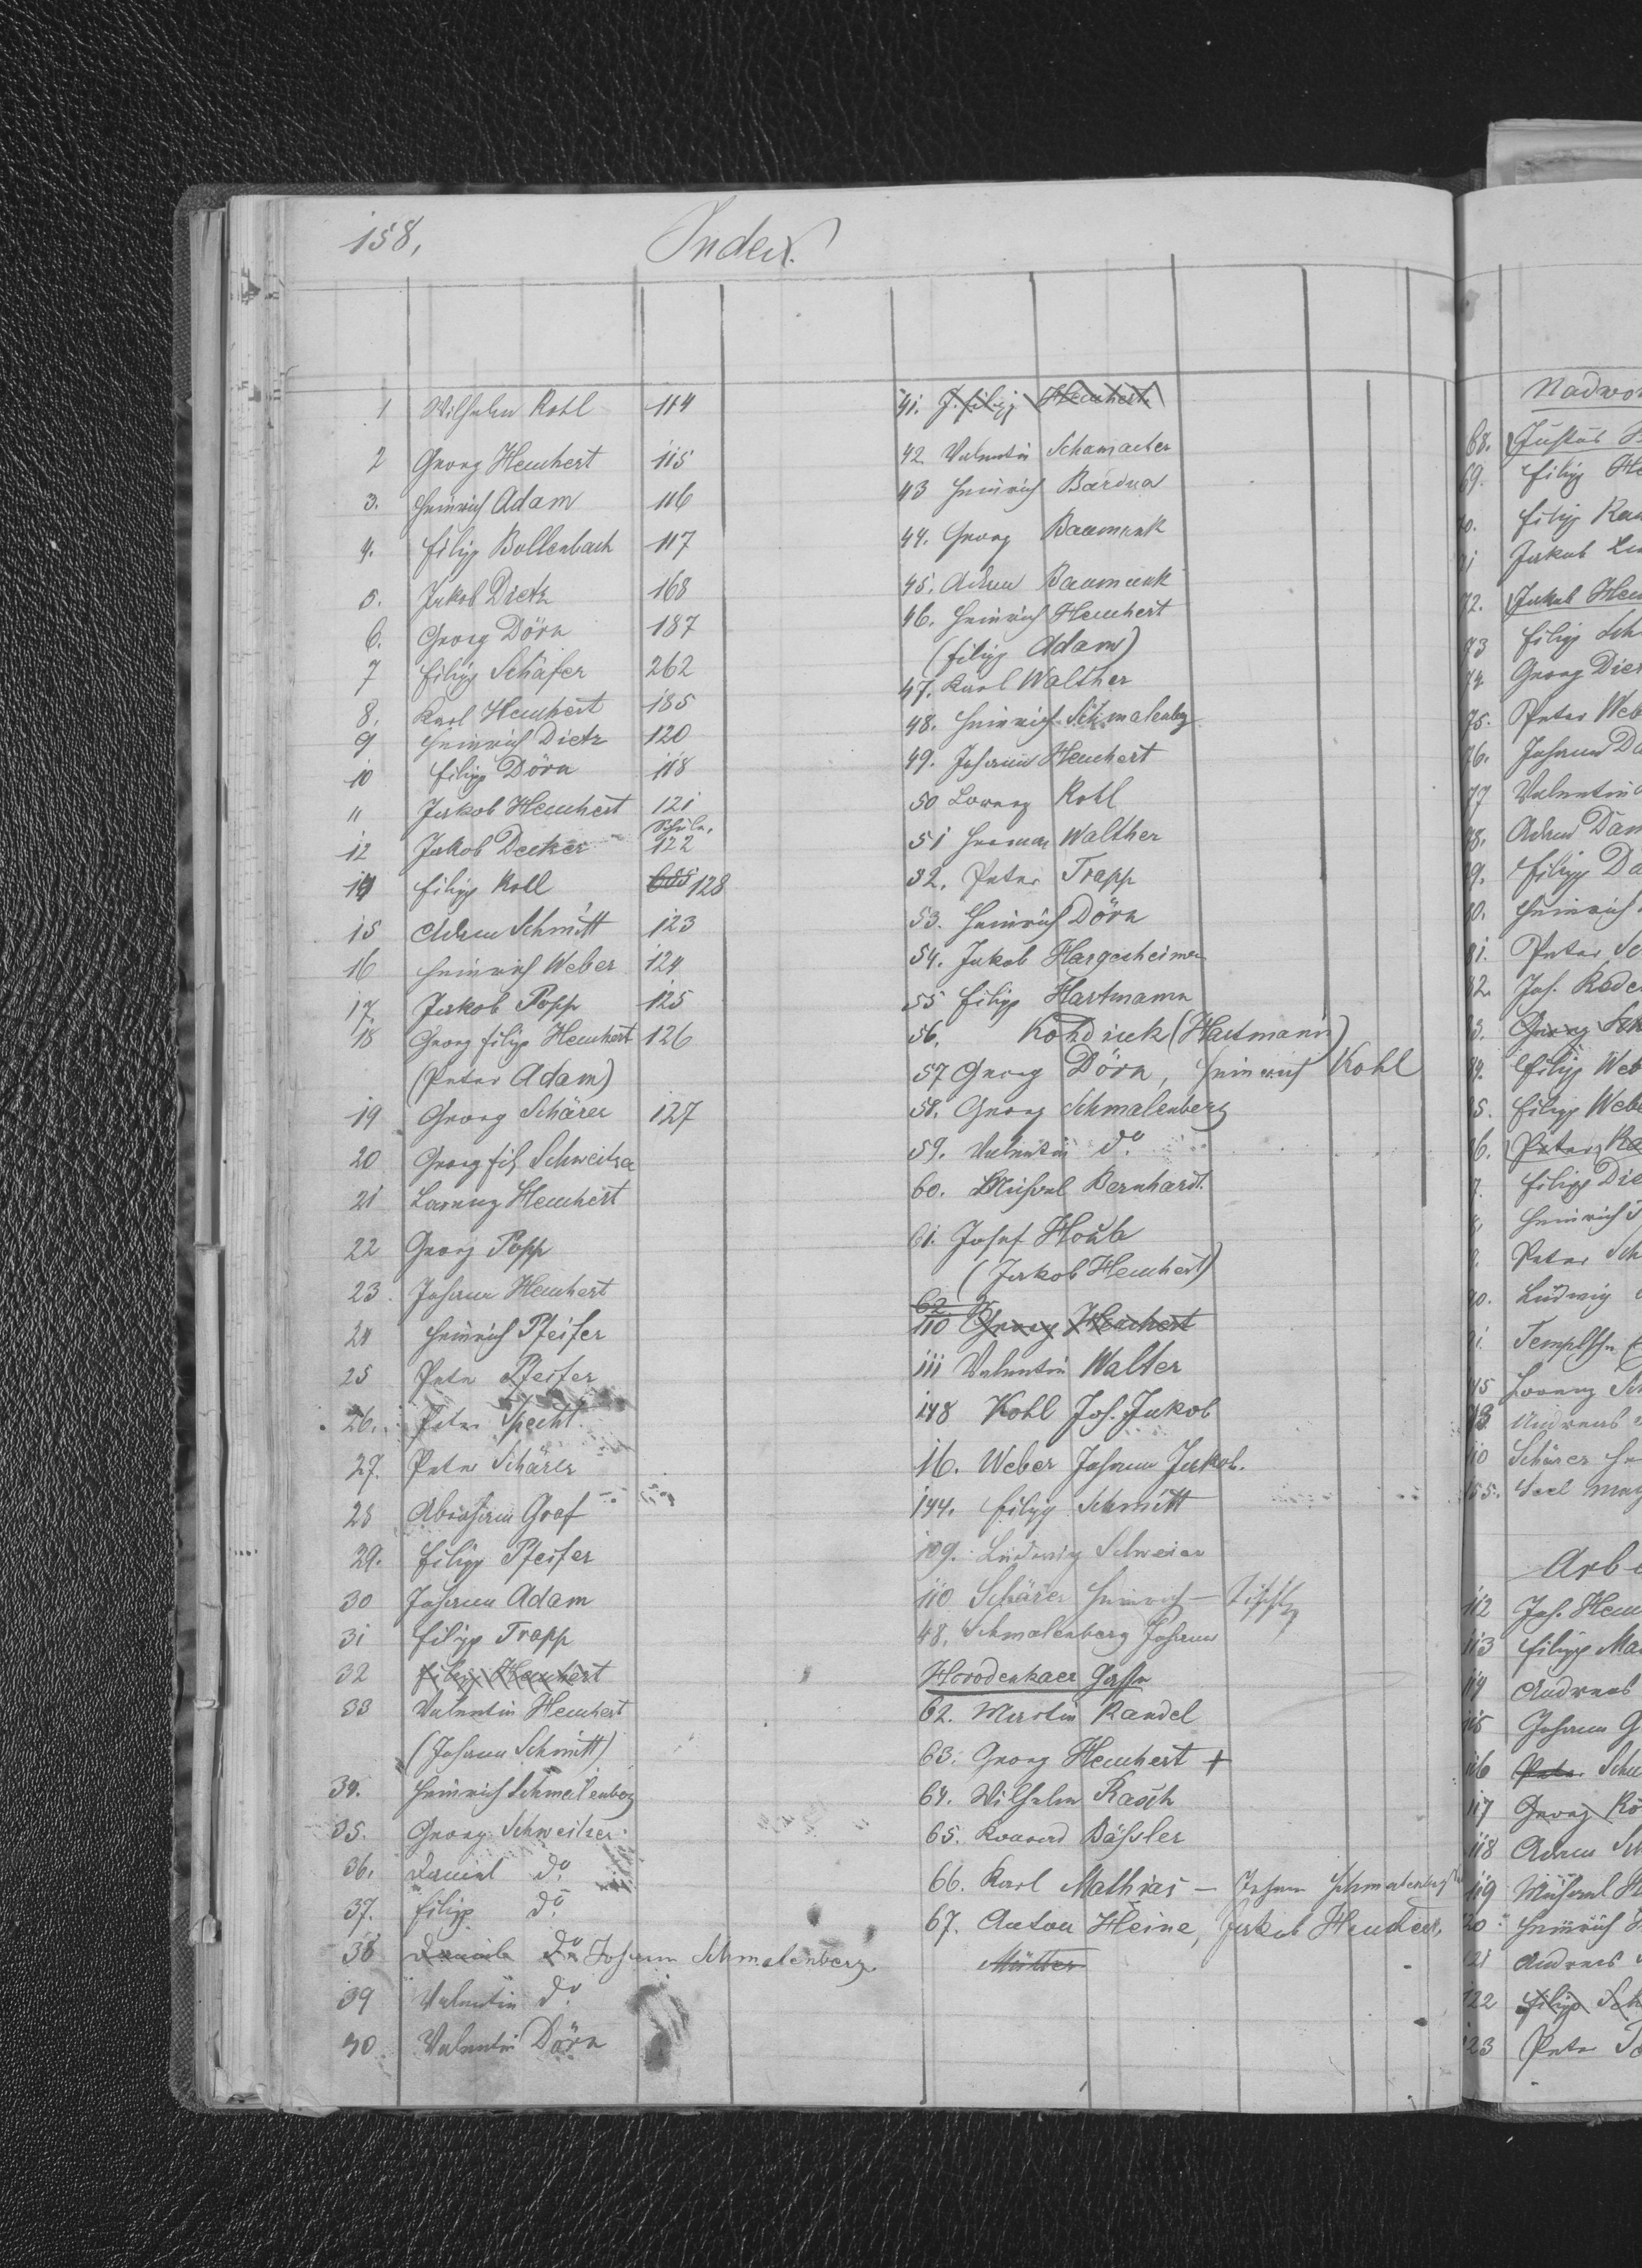 158.
Index.
1 Wilhelm Kohl 114
2 Georg Heuchert 115
3. Heinrich Adam 116
4. Filipp Bollenbach 117
5. Jakob Dietz 168
6. Georg Dörn 187
7 Filipp Schäfer 262
8. Karl Heuchert 185
9 Heinrich Dietz 120
10 Filipp Dörn 118
11 Jakob Heuchert 121
Schule.
12 Jakob Decker 122
14 Filipp Koll 128
15 Adam Schmitt 123
16 Heinrich Weber 124
17. Jakob Popp 125
18 Georg Filipp Heuchert 126
(Peter Adam)
19 Georg Schärer 127
20 Georg Fil. Schweitzer
21 Lorenz Heuchert
22 Georg Popp
23. Johann Heuchert
24 Heinrich Pfeifer
25 Peter Pfeifer
26. Peter Specht
27. Peter Schärer
28 Abraham Graf
29. Filipp Pfeifer
30 Johann Adam
31 Filipp Trapp
32 Filipp Heuchert
33 Valentin Heuchert
(Johann Schmitt)
34. Heinrich Schmalenberg
35. Georg Schweitzer
36. Daniel do
37. Filipp do
38 Daniel do Johann Schmalenberg
39 Valentin do
40 Valentin Dörn
41. J. Filipp Heuchert
42 Valentin Schamacher
43 Heinrich Bardua
44. Georg Baumunk
45. Adam Baumunk
46. Heinrich Heuchert
(Filipp Adam)
47. Karl Walther
48. Heinrich Schmalenbg
49. Johann Heuchert
50 Lorenz Kohl
51 Herman Walther
52. Peter Trapp
53. Heinrich Dörn
54. Jakob Hargesheimer
55 Filipp Hartmann
56. (Hartmann)
57 Georg Dörn, Heinrich Kohl
58. Georg Schmalenberg
59. Valentin do
60. Michael Bernhardt
61. Josef
(Jakob Heuchert)
62
110 Georg Heuchert
111 Valentin Walter
148 Kohl Joh. Jakob
16. Weber Johann Jakob.
144. Filipp Schmitt
109. Ludwig Schweier
110 Schärer Heinrich –
48. Schmalenberg Johann
Horodenkaer Gasse
62. Martin Kandel
63. Georg Heuchert +
64. Wilhelm Rasch
65. Konrad Bäßler
66. Karl Mathias – Johann Schmalenberg
67. Anton Heine, Jakob Heuchert,
Mütter
68. Justus
69. Filipp
Filipp
Jakob
72. Jakob
73 Filipp
74 Georg
75. Peter Web
76. Johann
77 Valentin
78. Adam
79. Filipp
80. Heinrich
81. Peter
82. Joh.
83. Georg
84. Filipp Web
85. Filipp Webe
86. Peter
Filipp Die
Heinrich
Peter Sch
90. Ludwig
Lorenz
Andreas
110 Schärer
155.
Arbe
112 Joh. Heu
113 Filipp
114 Andreas
115 Johann G
116 Peter
117 Georg
118 Adam
119 Michael
120 Heinrich
121 Andreas
122 Filipp
123 Peter